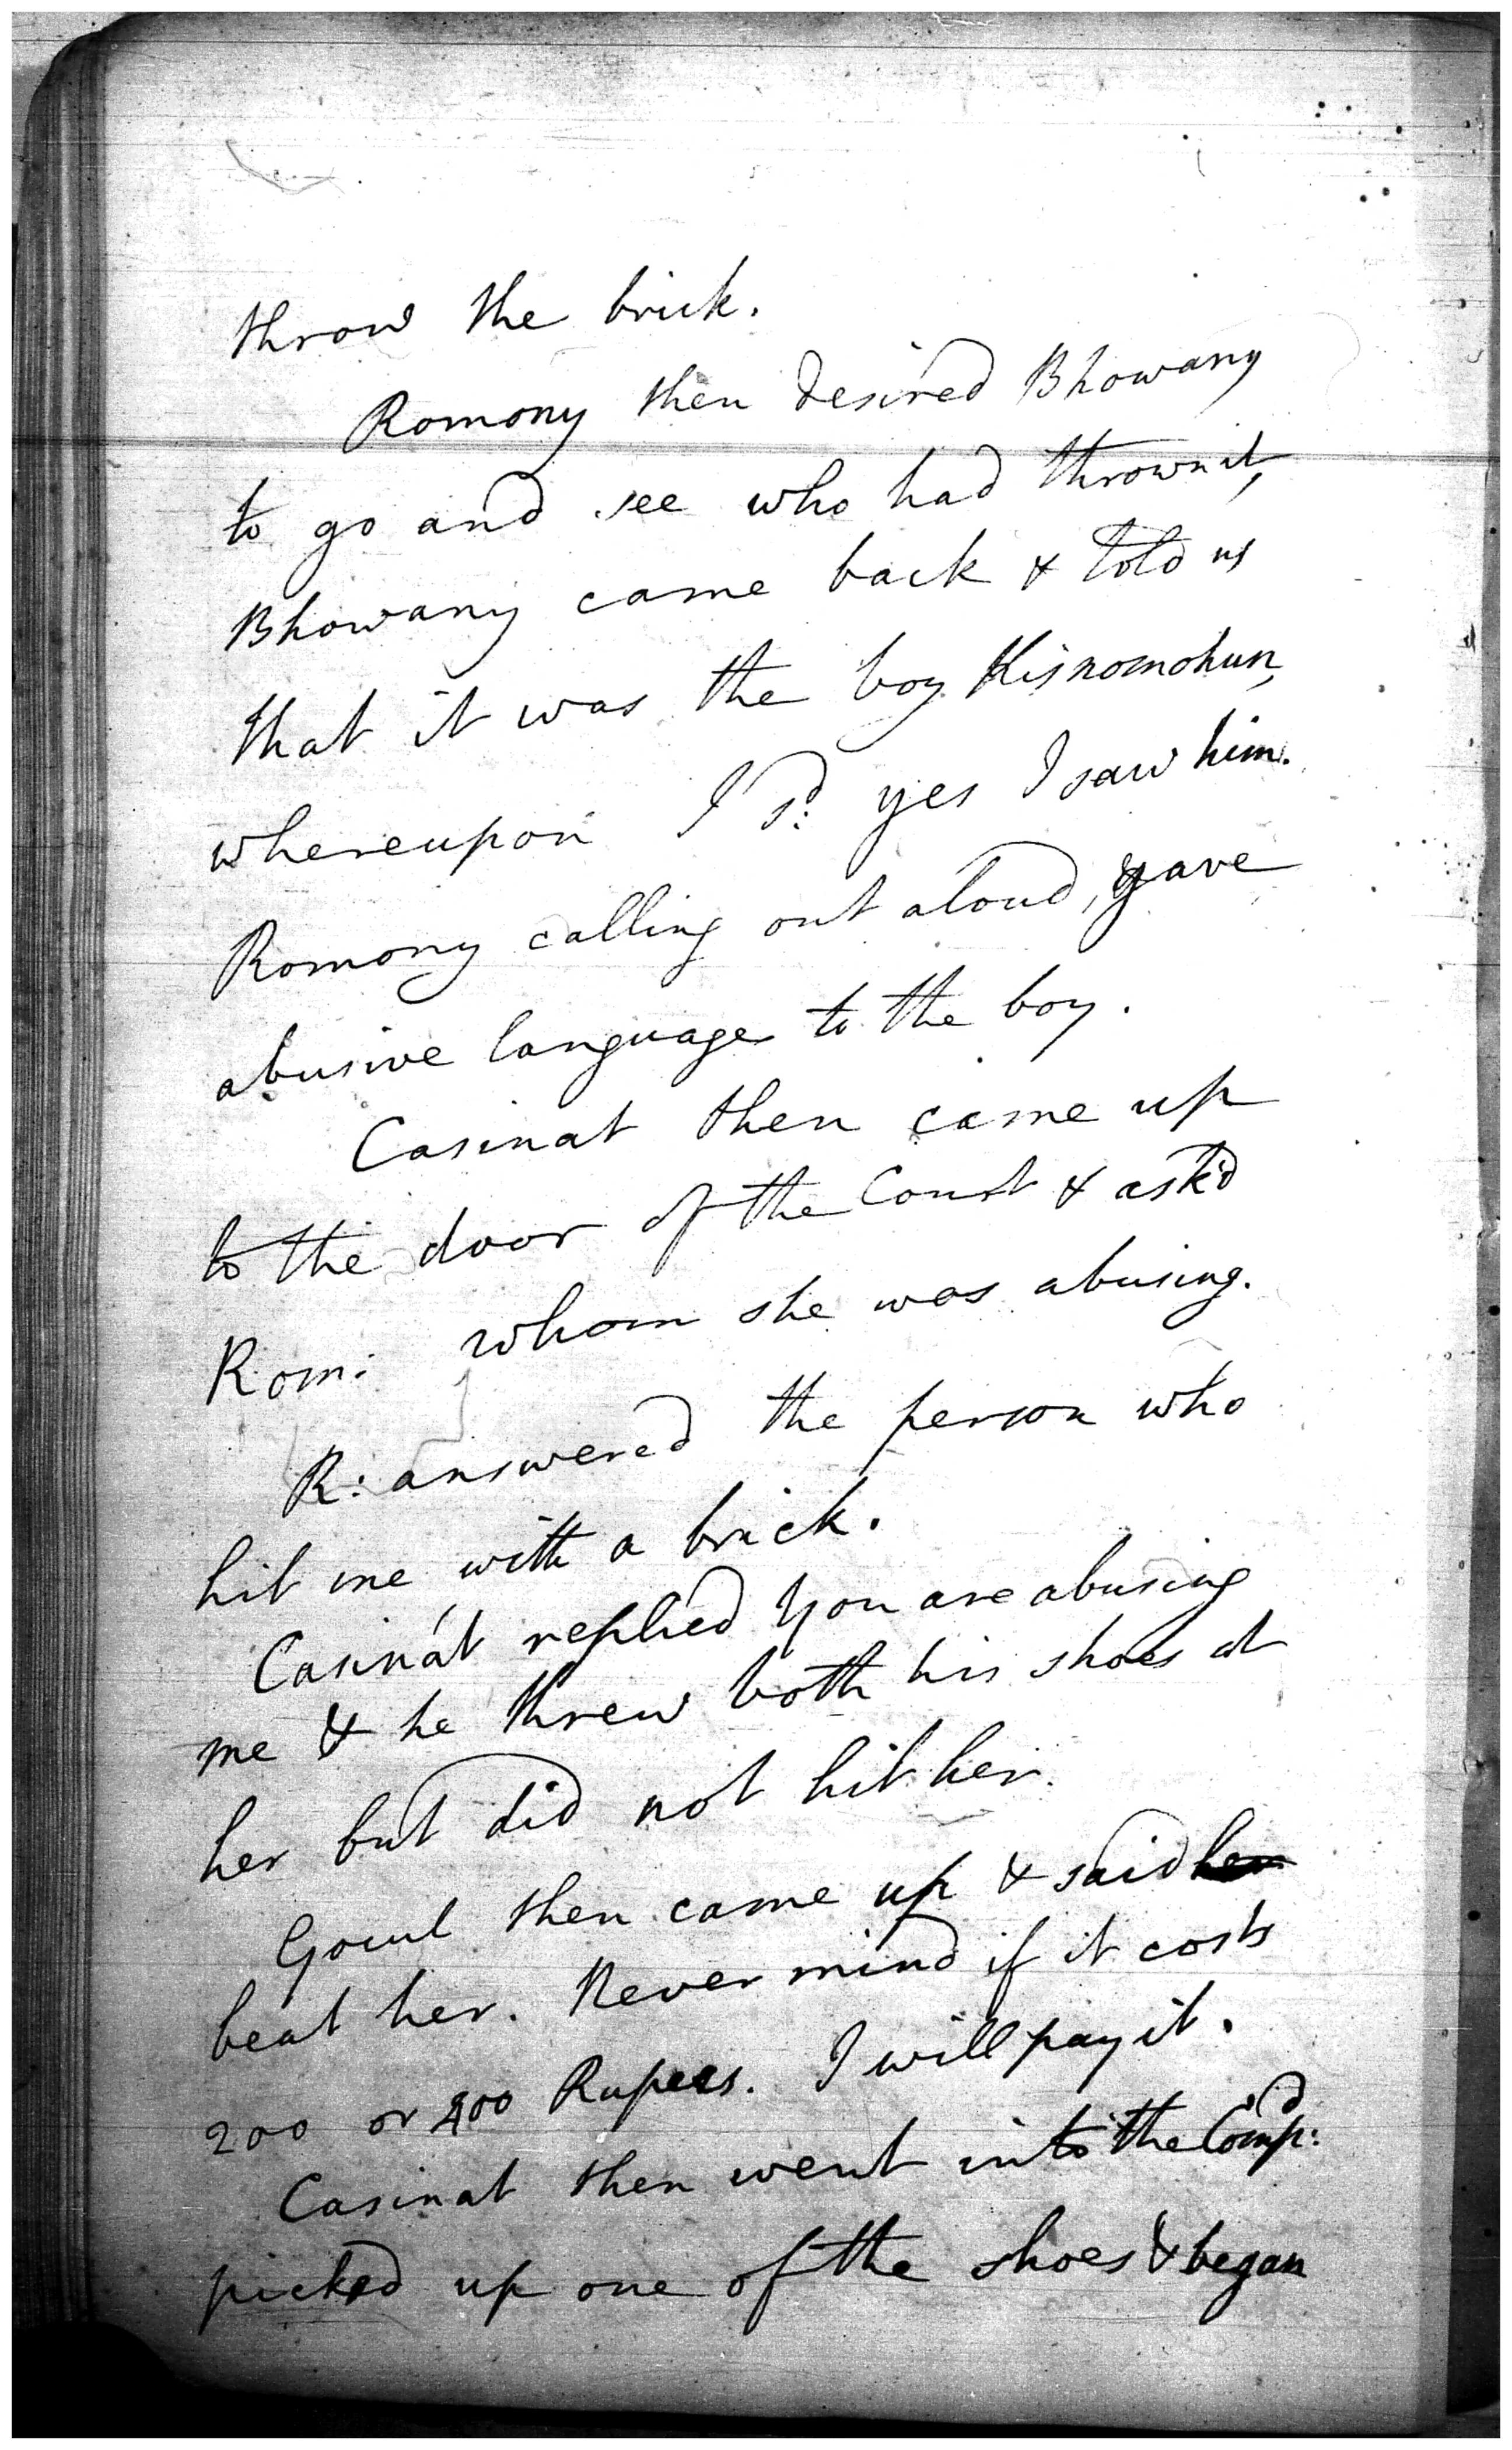 throw the brick.
Romony then desired Bhowany
to go and see who had thrown it,
Bhowany came back & told us
that it was the boy Kisnomohun,
whereupon I sd: yes I saw him.
Romony calling out aloud, gave
abusive language to the boy.
Casinat then came up
to the door of the Court & ask'd
Rom: whom she was abusing.
R: answered the person who
hit me with a brick.
Casinat replied You are abusing
me & he threw both his shoes at
her but did not hit her.
Gocul then came up & said
beat her. Never mind if it costs
200 or 400 Rupees. I will pay it.
Casinat then went into the Compd:
picked up one of the shoes & began